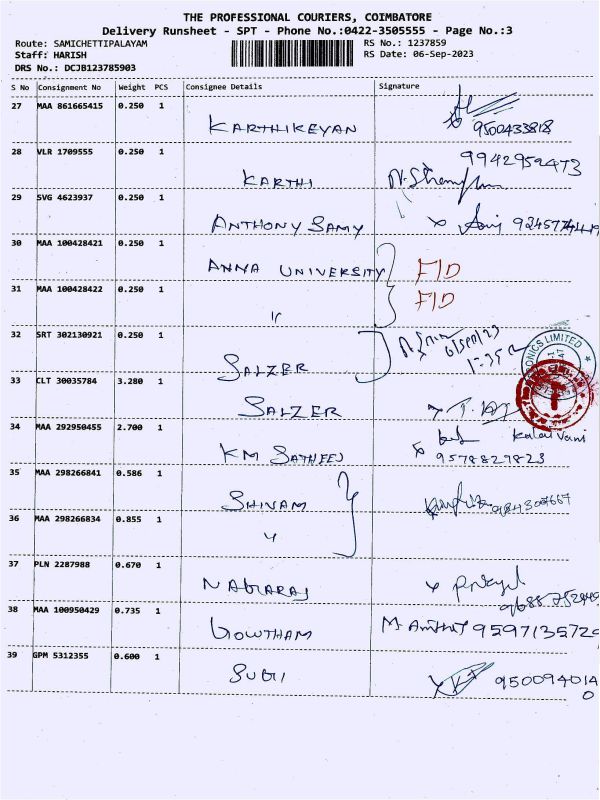 THE PROFESSIONAL COURIERS, COIMBATORE
Delivery Runsheet - SPT - Phone No.:0422-3505555 - Page No.:3
Route: SAMICHETTIPALAYAM
RS No.: 1237859
Staff: HARISH
RS Date: 06-Sep-2023
DRS No.: DCJB123785903
S No Consignment No Weight PCS Consignee Details Signature
27 MAA 861665415 0.250 1
KARTHIKEYAN 9500433818
28 VLR 1709555 0.250 1 9942959473
KARTHI
29 SVG 4623937 0.250 1
ANTHONY SAMY
30 MAA 100428421 0.250 1
ANNA UNIVERSITY F/D
31 MAA 100428422 0.250 1 F/D
"
32 SRT 302130921 0.250 1
SALZER
33 CLT 30035784 3.280 1
SALZER
34 MAA 292950455 2.700 1 Kalai Vani
KM SATHEES 9578829823
35 MAA 298266841 0.586 1
SHIVAM
36 MAA 298266834 0.855 1
"
37 PLN 2287988 0.670 1
NAGARAJ
38 MAA 100950429 0.735 1
GOWTHAM 9597135729
39 GPM 5312355 0.600 1
SUGI 9500940140